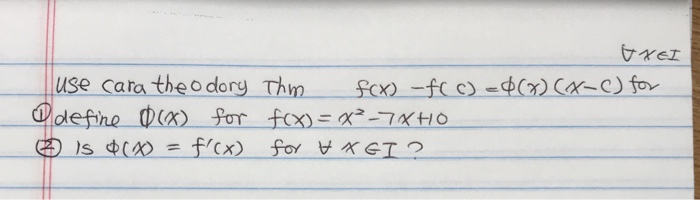 ∀ x∈I
use cara theodory Thm f(x) - f( c) = φ(x) (x-c) for
① define Φ(x) for f(x) = x² - 7x+10
② Is φ(x) = f'(x) for ∀ x ∈I ?